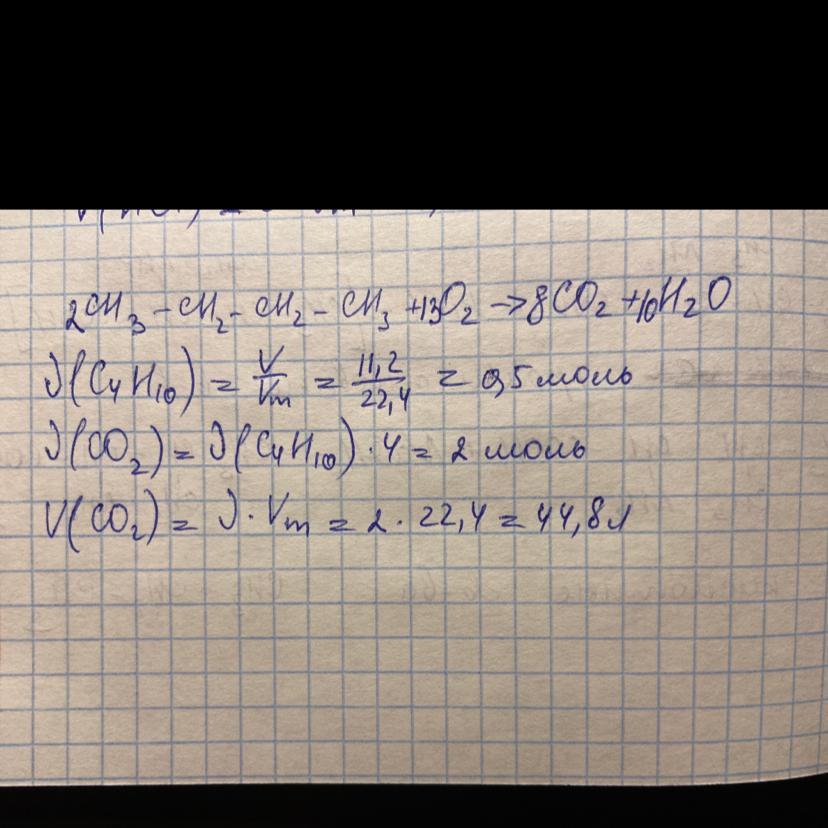 2CH₃-CH₂-CH₂-CH₃ +13O₂ →8CO₂ +10H₂O
ν(C₄H₁₀) = V/Vm = 11,2/22,4 = 0,5 моль
ν(CO₂) = ν(C₄H₁₀)·4 = 2 моль
V(CO₂) = ν·Vm = 2·22,4 = 44,8л